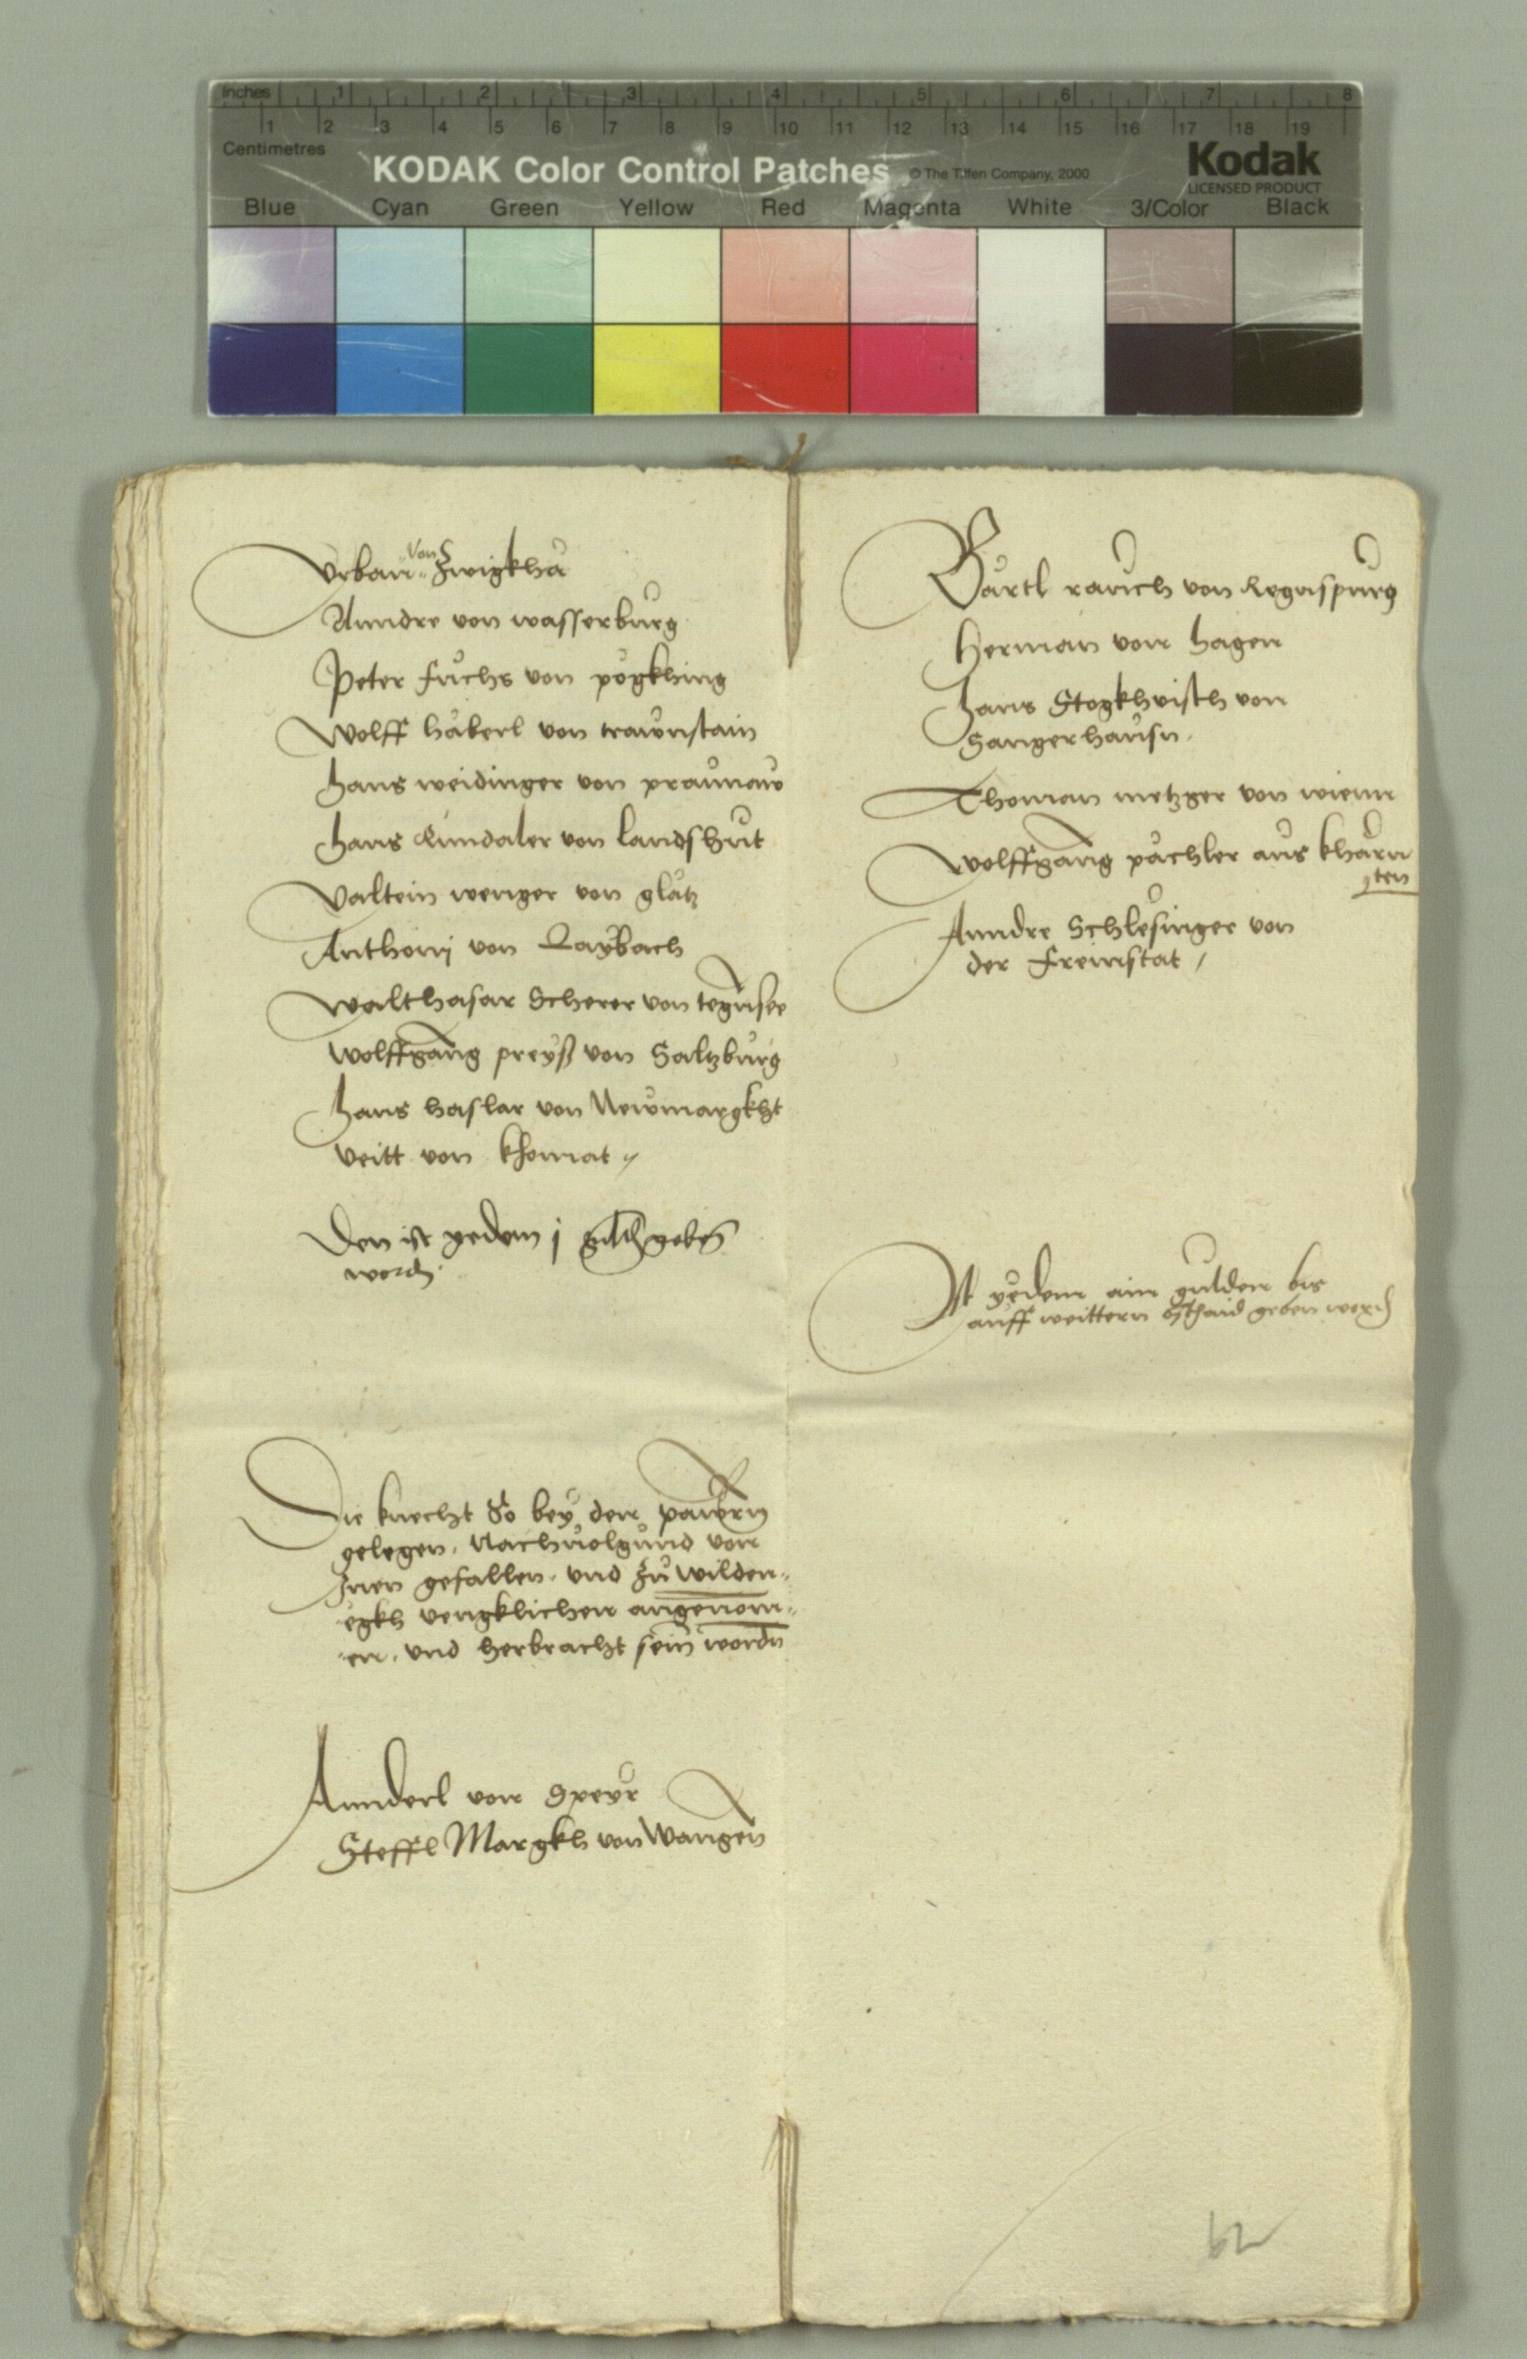 Inches 1 2 3 4 5 6 7 8
1 2 3 4 5 6 7 8 9 10 11 12 13 14 15 16 17 18 19
Centimetres
KODAK Color Control Patches © The Tiffen Company, 2000
Kodak
LICENSED PRODUCT
Blue Cyan Green Yellow Red Magenta White 3/Color Black
von
Urban Zwigkha
Anndre von wasserburg
Peter fuchs von pogkhing
Wolff häberl von traunstain
Hans weidinger von praunaw
Hans Lundaler von landshut
Valtein wenger von glatz
Anthoni von Laybach
Walthasar Scherer von tegnsee
Wolffgang preyß von Saltzburg
Hans haslar von Newmargkht
Veitt von khomat
Den ist yedem j guld geben
word
Die knecht So bey den pawrn
gelegen. Nachuolgund von
Inen gefallen. und zu wilden-
egkh vengklichen angenom-
en. und herbracht sein wordn
Annderl von Speyr
Steffl Margkh von Wangen
Bartl rauch von Regnspurg
Herman von hagen
Hans Stogkhvisch von
Sangerhausn.
Thoman metzger von wienn
Wolffgang pachler aus kharn
ten
Anndre Schlesinger von
der Freinstat
Ist yedem ain gulden bis
auff weittern bschaid geben word
62